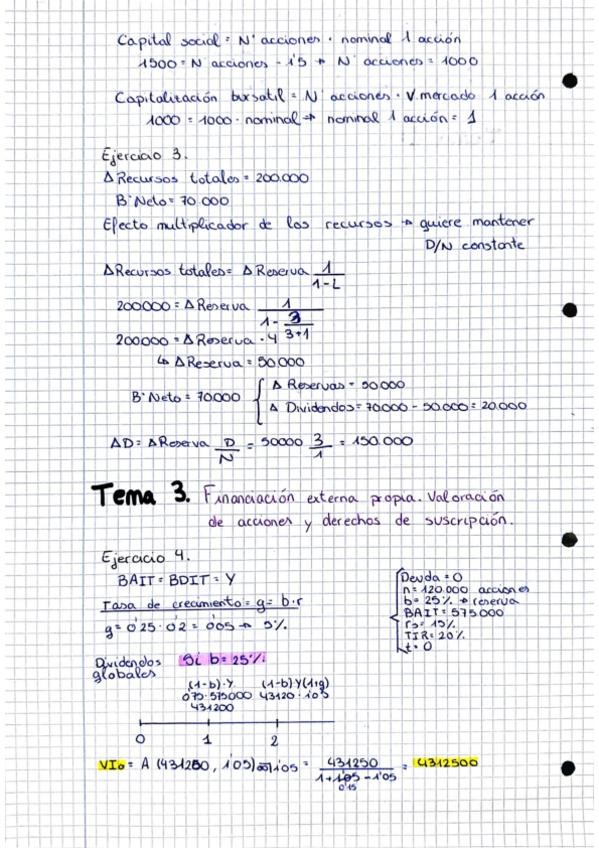 Capital social = Nº acciones · nominal 1 acción
1500 = N acciones · 1'5 → Nº acciones = 1000
Capitalización bursatil = Nº acciones · V. mercado 1 acción
1000 = 1000 · nominal → nominal 1 acción = 1
Ejercicio 3.
Δ Recursos totales = 200.000
Bº Neto = 70.000
Efecto multiplicador de los recursos → quiere mantener
D/N constante
Δ Recursos totales = Δ Reserva 1/(1-L)
200000 = Δ Reserva 1/(1 - 3/(3+1))
200000 = Δ Reserva · 4
↳ Δ Reserva = 50000
Bº Neto = 70000 { Δ Reservas = 50000
Δ Dividendos = 70000 - 50.000 = 20.000
ΔD = Δ Reserva D/N = 50000 3/1 = 150.000
Tema 3. Financiación externa propia. Valoración
de acciones y derechos de suscripción.
Ejercicio 4.
BAIT = BDIT = Y
Tasa de crecimiento = g = b·r
g = 0'25 · 0'2 = 0'05 → 5%
Deuda = 0
n = 120.000 acciones
b = 25% → reserva
BAIT = 575000
rs = 15%
TIR = 20%
t = 0
Dividendos globales
Si b = 25%
(1-b)·Y (1-b)Y(1+g)
0'75·575000 43120·1'05
431200
0 1 2
VI₀ = A (431250, 1'05)∞ 1'05 = 431250/(1+0'15-1'05) = 4312500
0'15